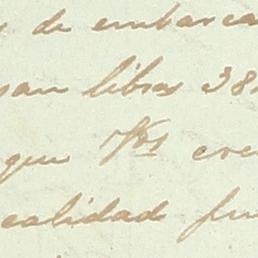 de embarca
san libras 38
que Vds cre
calidad fu